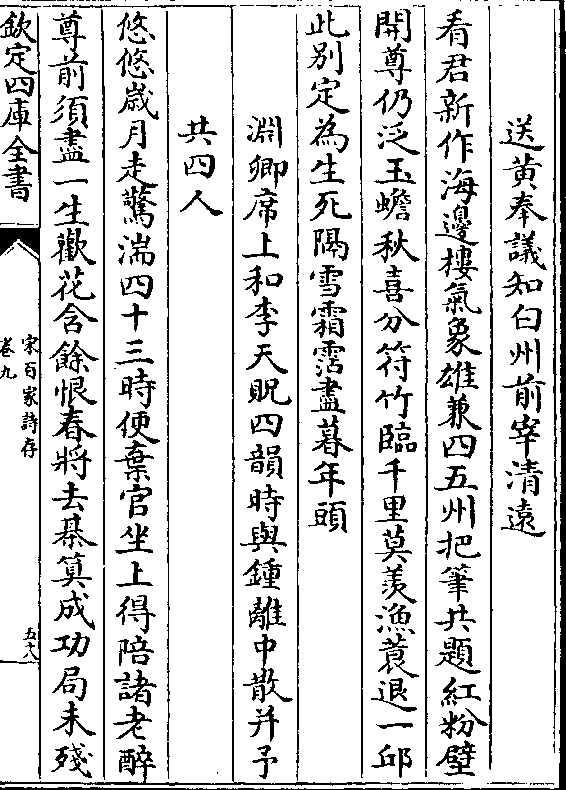 送黄奉議知白州前宰清遠
看君新作海邊樓氣象雄兼四五州把筆共題紅粉壁
開尊仍泛玉蟾秋喜分符竹臨千里莫羨漁蓑退一邱
此别定為生死隔雪霜霑盡暮年頭
淵卿席上和李天貺四韻時與鍾離中散并予
共四人
悠悠歲月走驚湍四十三時便棄官坐上得陪諸老醉
尊前須盡一生歡花含餘恨春將去棊算成功局未殘
欽定四庫全書
宋百家詩存
卷九
五十八